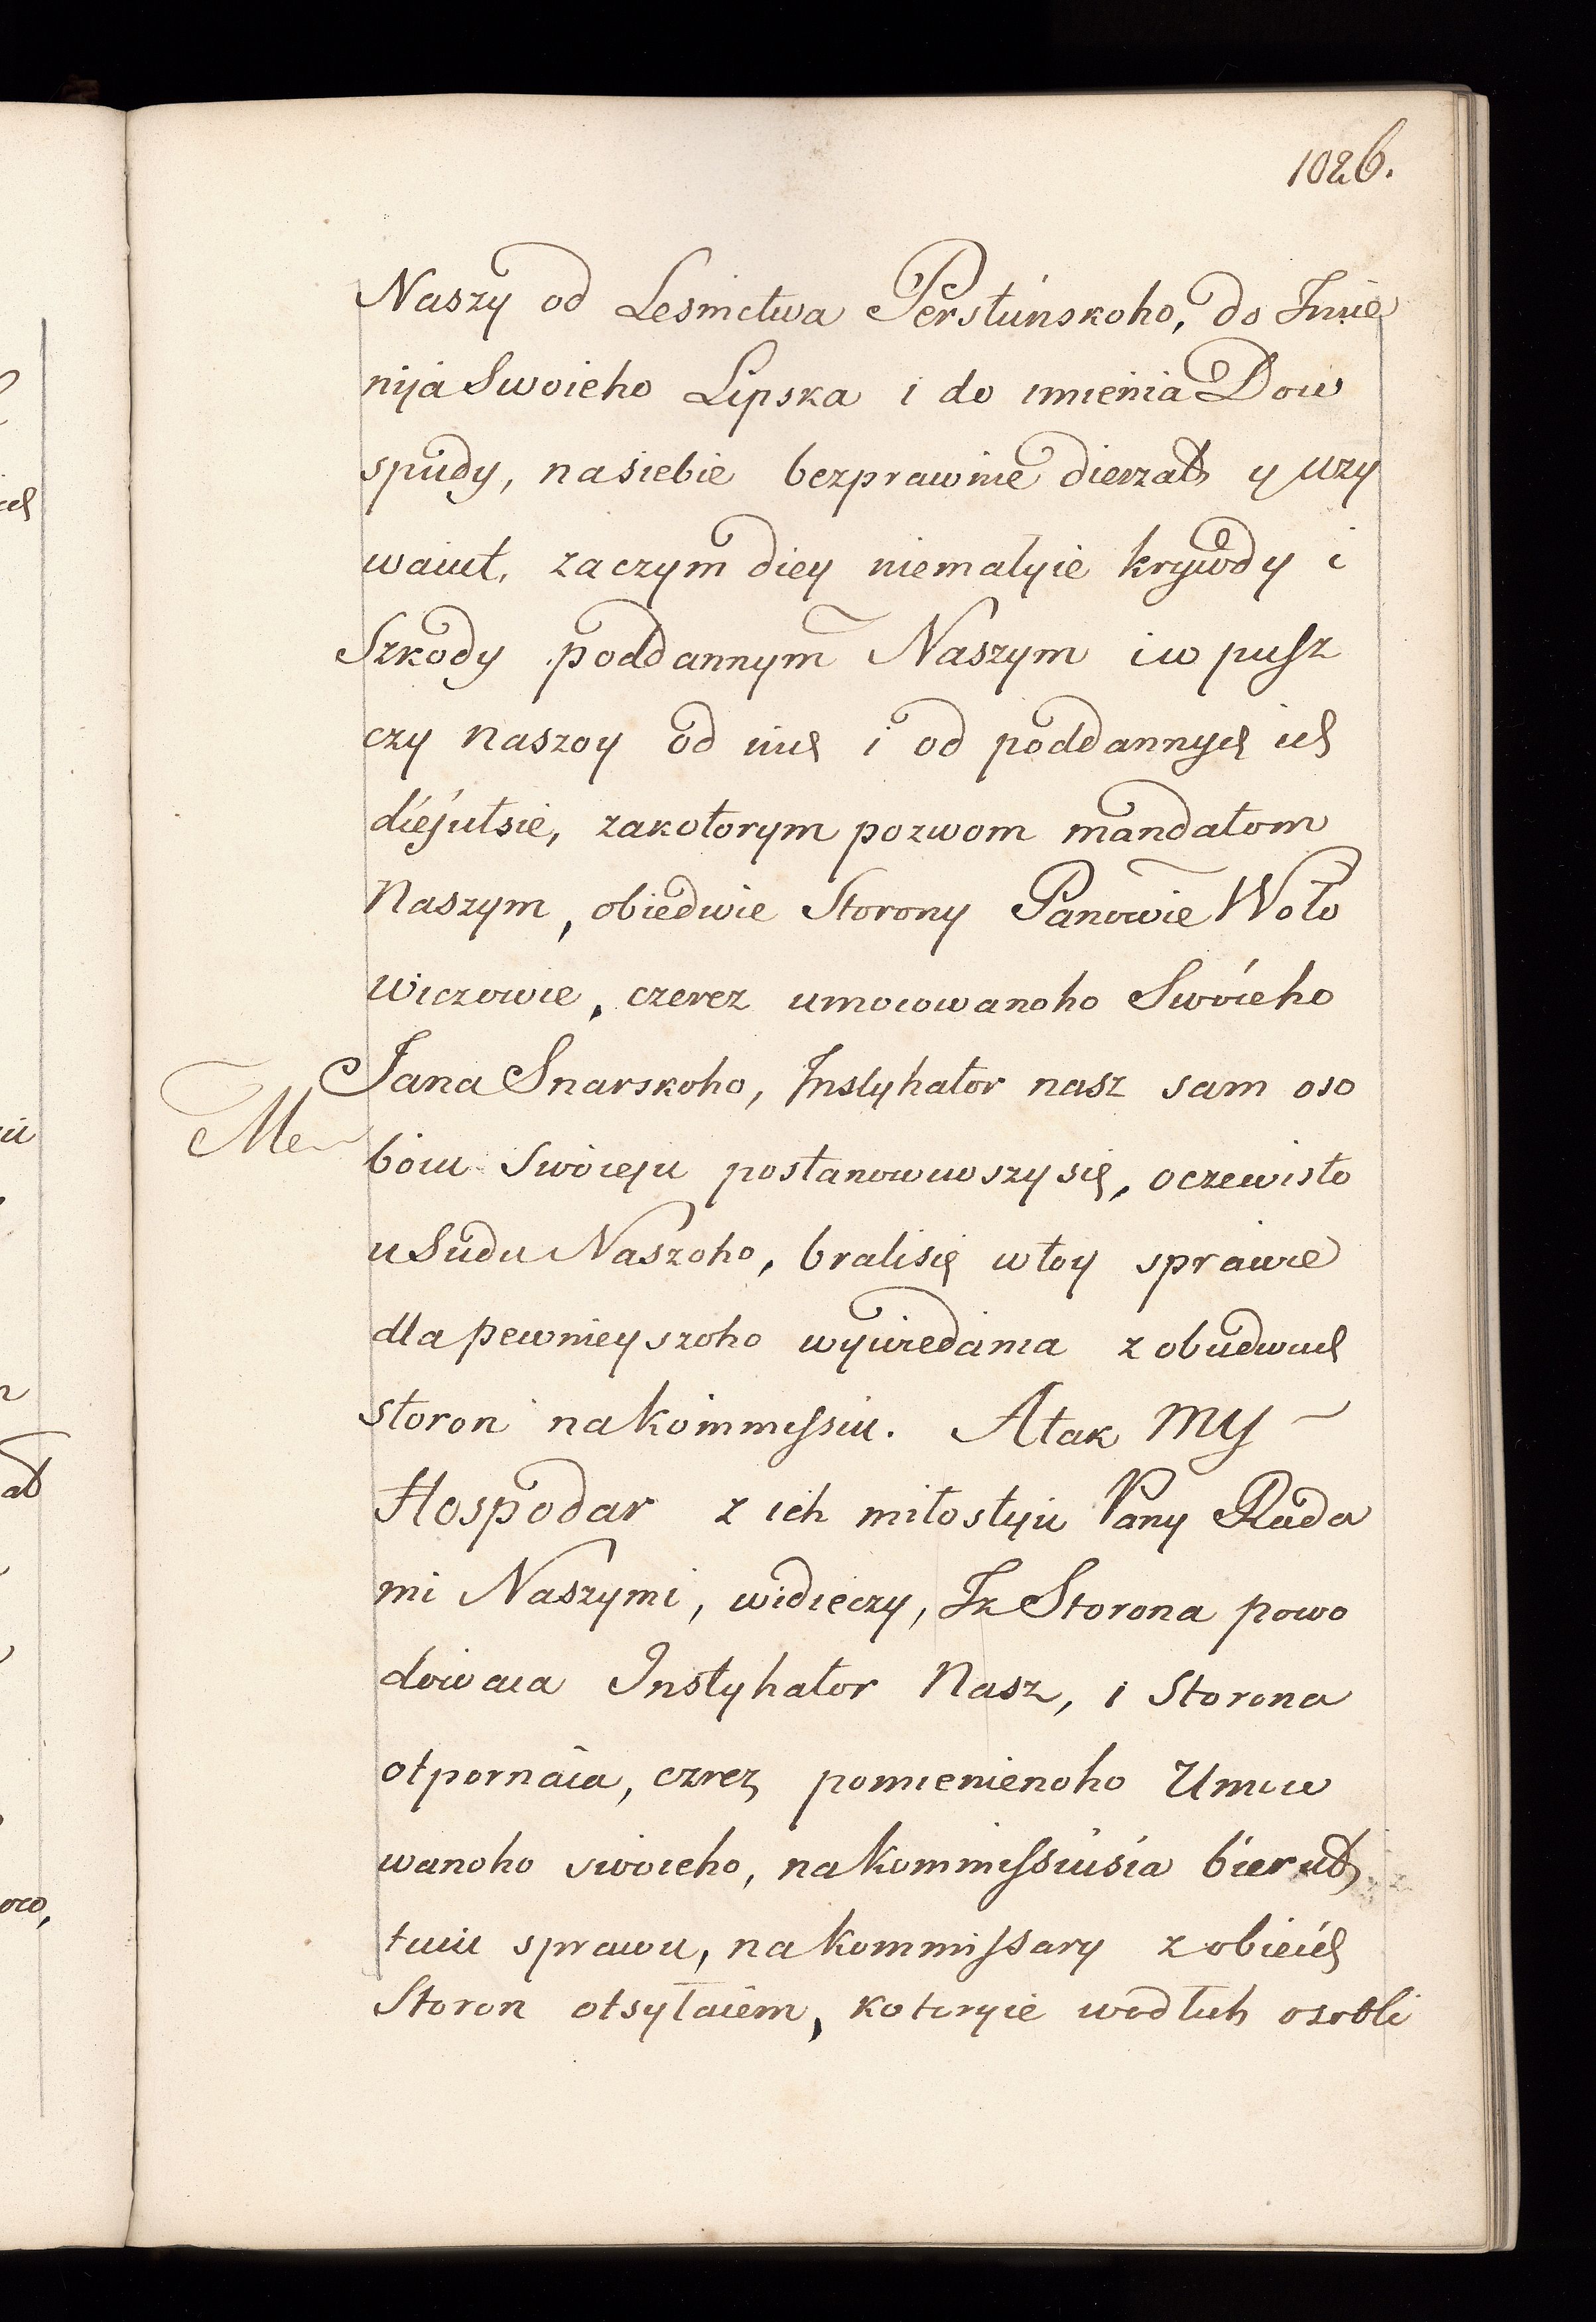 1026.
Naszy od Lesnictwa Perstunskoho, do Imie
nija Swoieho Lipska i do imienia Dow
spudy, nasiebie bezprawnie dierzat y uzy
waiut, zaczym diey niemalyie krywdy i
Szkody poddannym Naszym iw pusz
czy naszoy od nich i od poddannych ich
diéjutsie, zakotorym pozwom mandatom
Naszym, obiedwie Storony Panowie Woło
wiczowie, czerez umocowanoho Swóieho
Jana Snarskoho, Instyhator nasz sam oso
boiu swoieju postanowiwszysię, oczewisto
u Sudu Naszoho, bralisię wtoy sprawie
dla pewnieyszoho wywiedania z obudwuch
storon nakommissiu. Atak My
Hospodar z ich miłostyiu Pany Rada
mi Naszymi, widieczy, Iz Storona powo
dowaia Instyhator Nasz, i Storona
otpornaia, czrez pomienienoho Umow
wanoho swoieho, nakommissiusia bierut
tuiu sprawu, nakommissary z obieich
Storon otsyłaiem, kotoryie wodłuh osobli